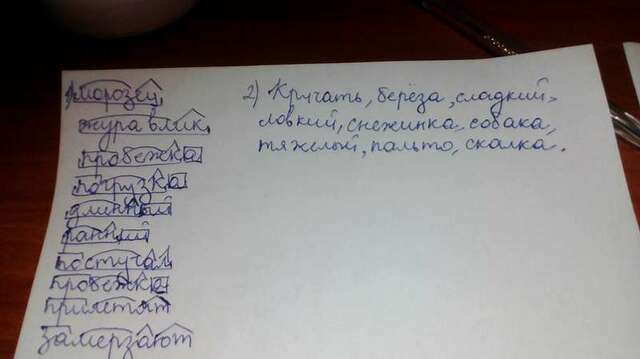 1) морозец,
журавлик,
пробежка
погрузка
длинный
ранний
постучал
пробежка
прилетят
замерзают
2) Кричать, берёза, сладкий,
ловкий, снежинка, собака,
тяжелый, пальто, скалка.